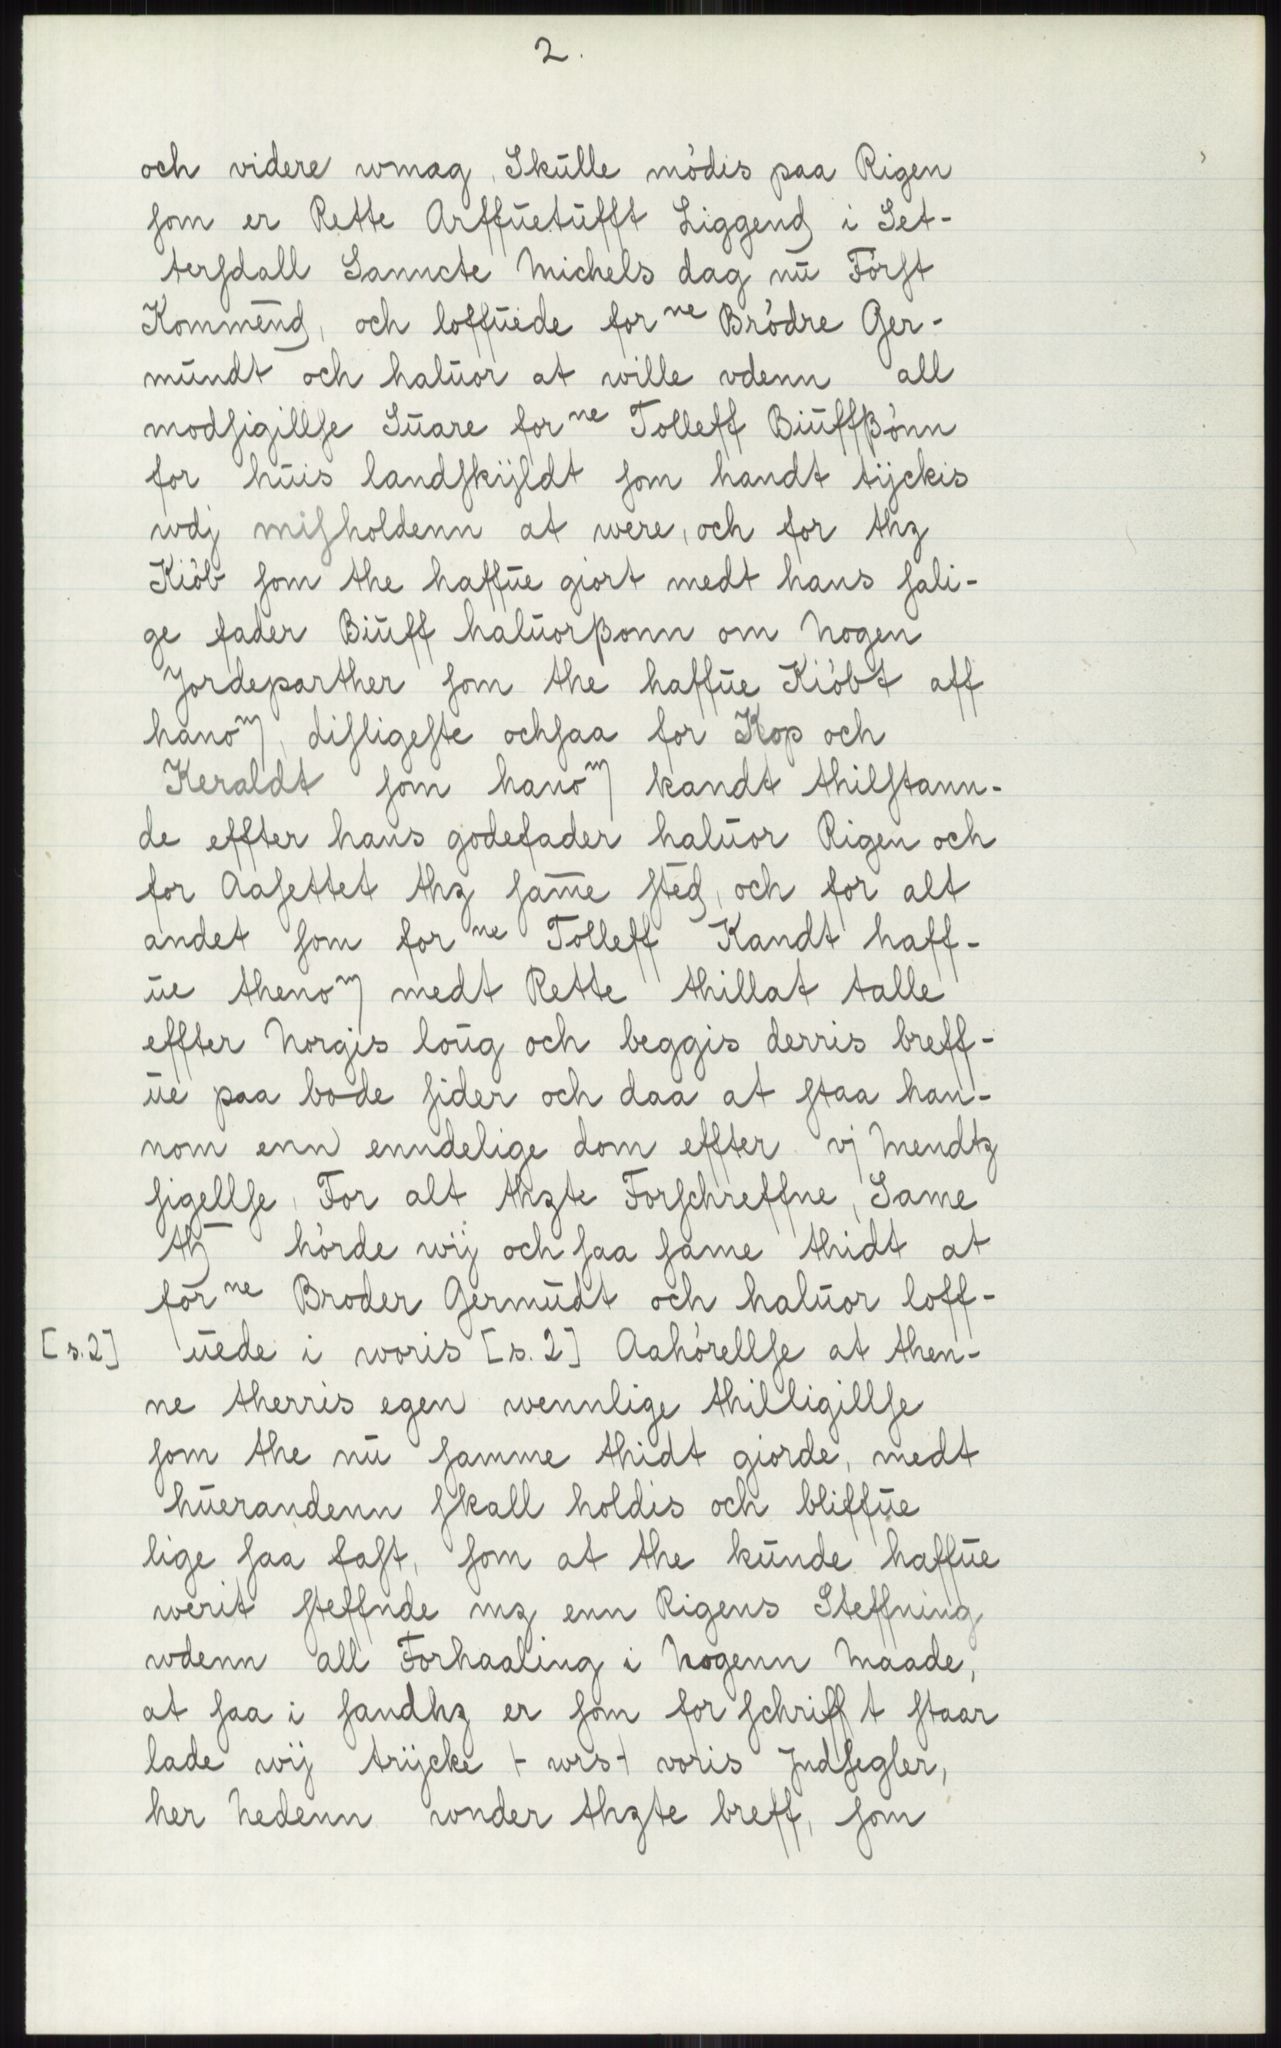 2.
och videre wmag, Skulle mödis paa Rigen
som er Rette Arffuetufft Liggend i Set-
tersdall Sanncte Michels dag nu Först
Kommend, och loffuede for ne Brödre Ger-
mundt och haluor at wille vdenn all
modsigillse Suare for ne Tolleff Biuffßönn
for huis landskÿldt som handt tÿckis
wdj misholdenn at were, och for thz
Kiöb som the haffue giort medt hans sali-
ge fader Biuff haluorßonn om Nogen
Jordeparther som the haffue Kiöbt aff
hanom, disligeste ochsaa for Kop och
Keraldt som hanom kandt thilstann-
de effter hans godefader haluor Rigen och
for Aasettet thz same sted, och for alt
andet som for ne Tolleff Kandt haff-
ue thenom medt Rette thillat talle
effter Norgis loug och beggis derris breff-
ue paa bode sider och daa at staa han-
nom enn enndelige dom effter vj Mendtz
sigellse, For alt thzte Forschreffne, Same
th hörde wÿ och saa same thidt at
for ne Broder Germudt och haluor loff-
[s.2] uede i woris [s.2] Aahörellse at then-
ne therris egen wennlige thilligillse
som the nu samme thidt giorde, medt
huerandenn skall holdis och bliffue
lige saa fast, som at the kunde haffue
werit steffnde mz enn Rigens Steffning
wdenn all Forhaaling i Nogenn Maade,
at saa i sandhz er som for schrifft staar
lade wÿ trÿcke ⊢ wrs ⊣ voris Jndsegler,
her Nedenn wnder thzte breff, som